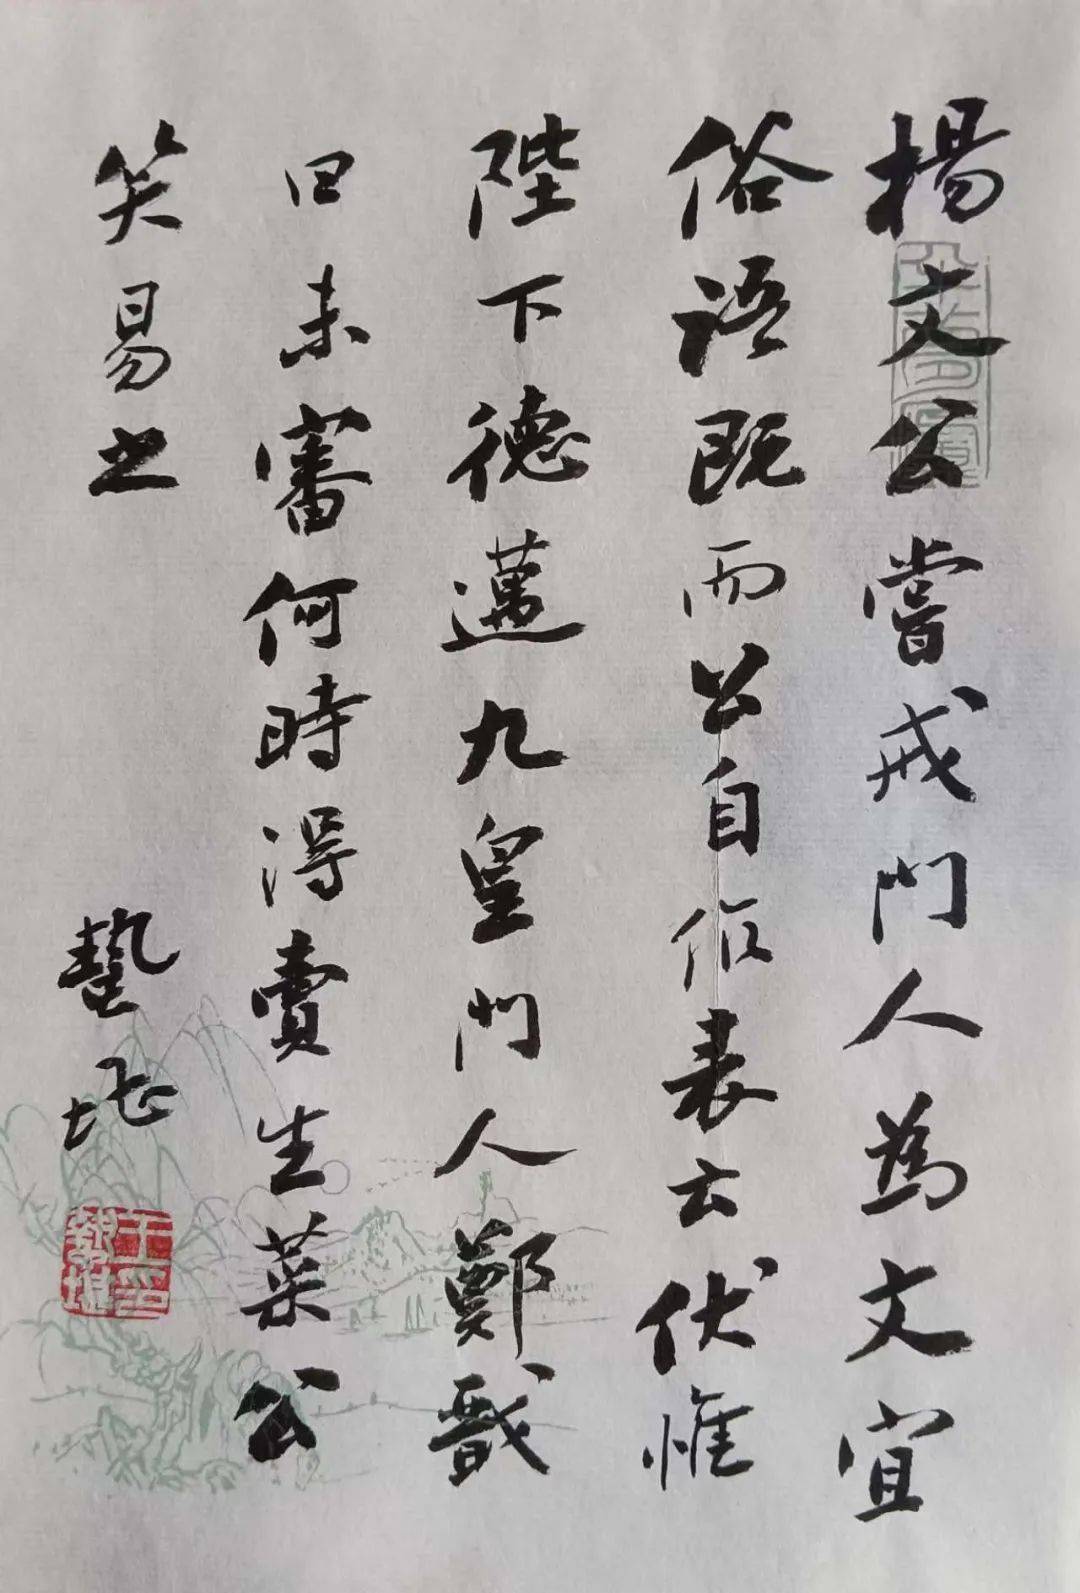 楊文公嘗戒門人為文宜
俗語既而公自作表云伏惟
陛下德邁九皇門人鄭戩
曰未審何時得賣生菜公
笑易之
蟄堪
王印蟄堪